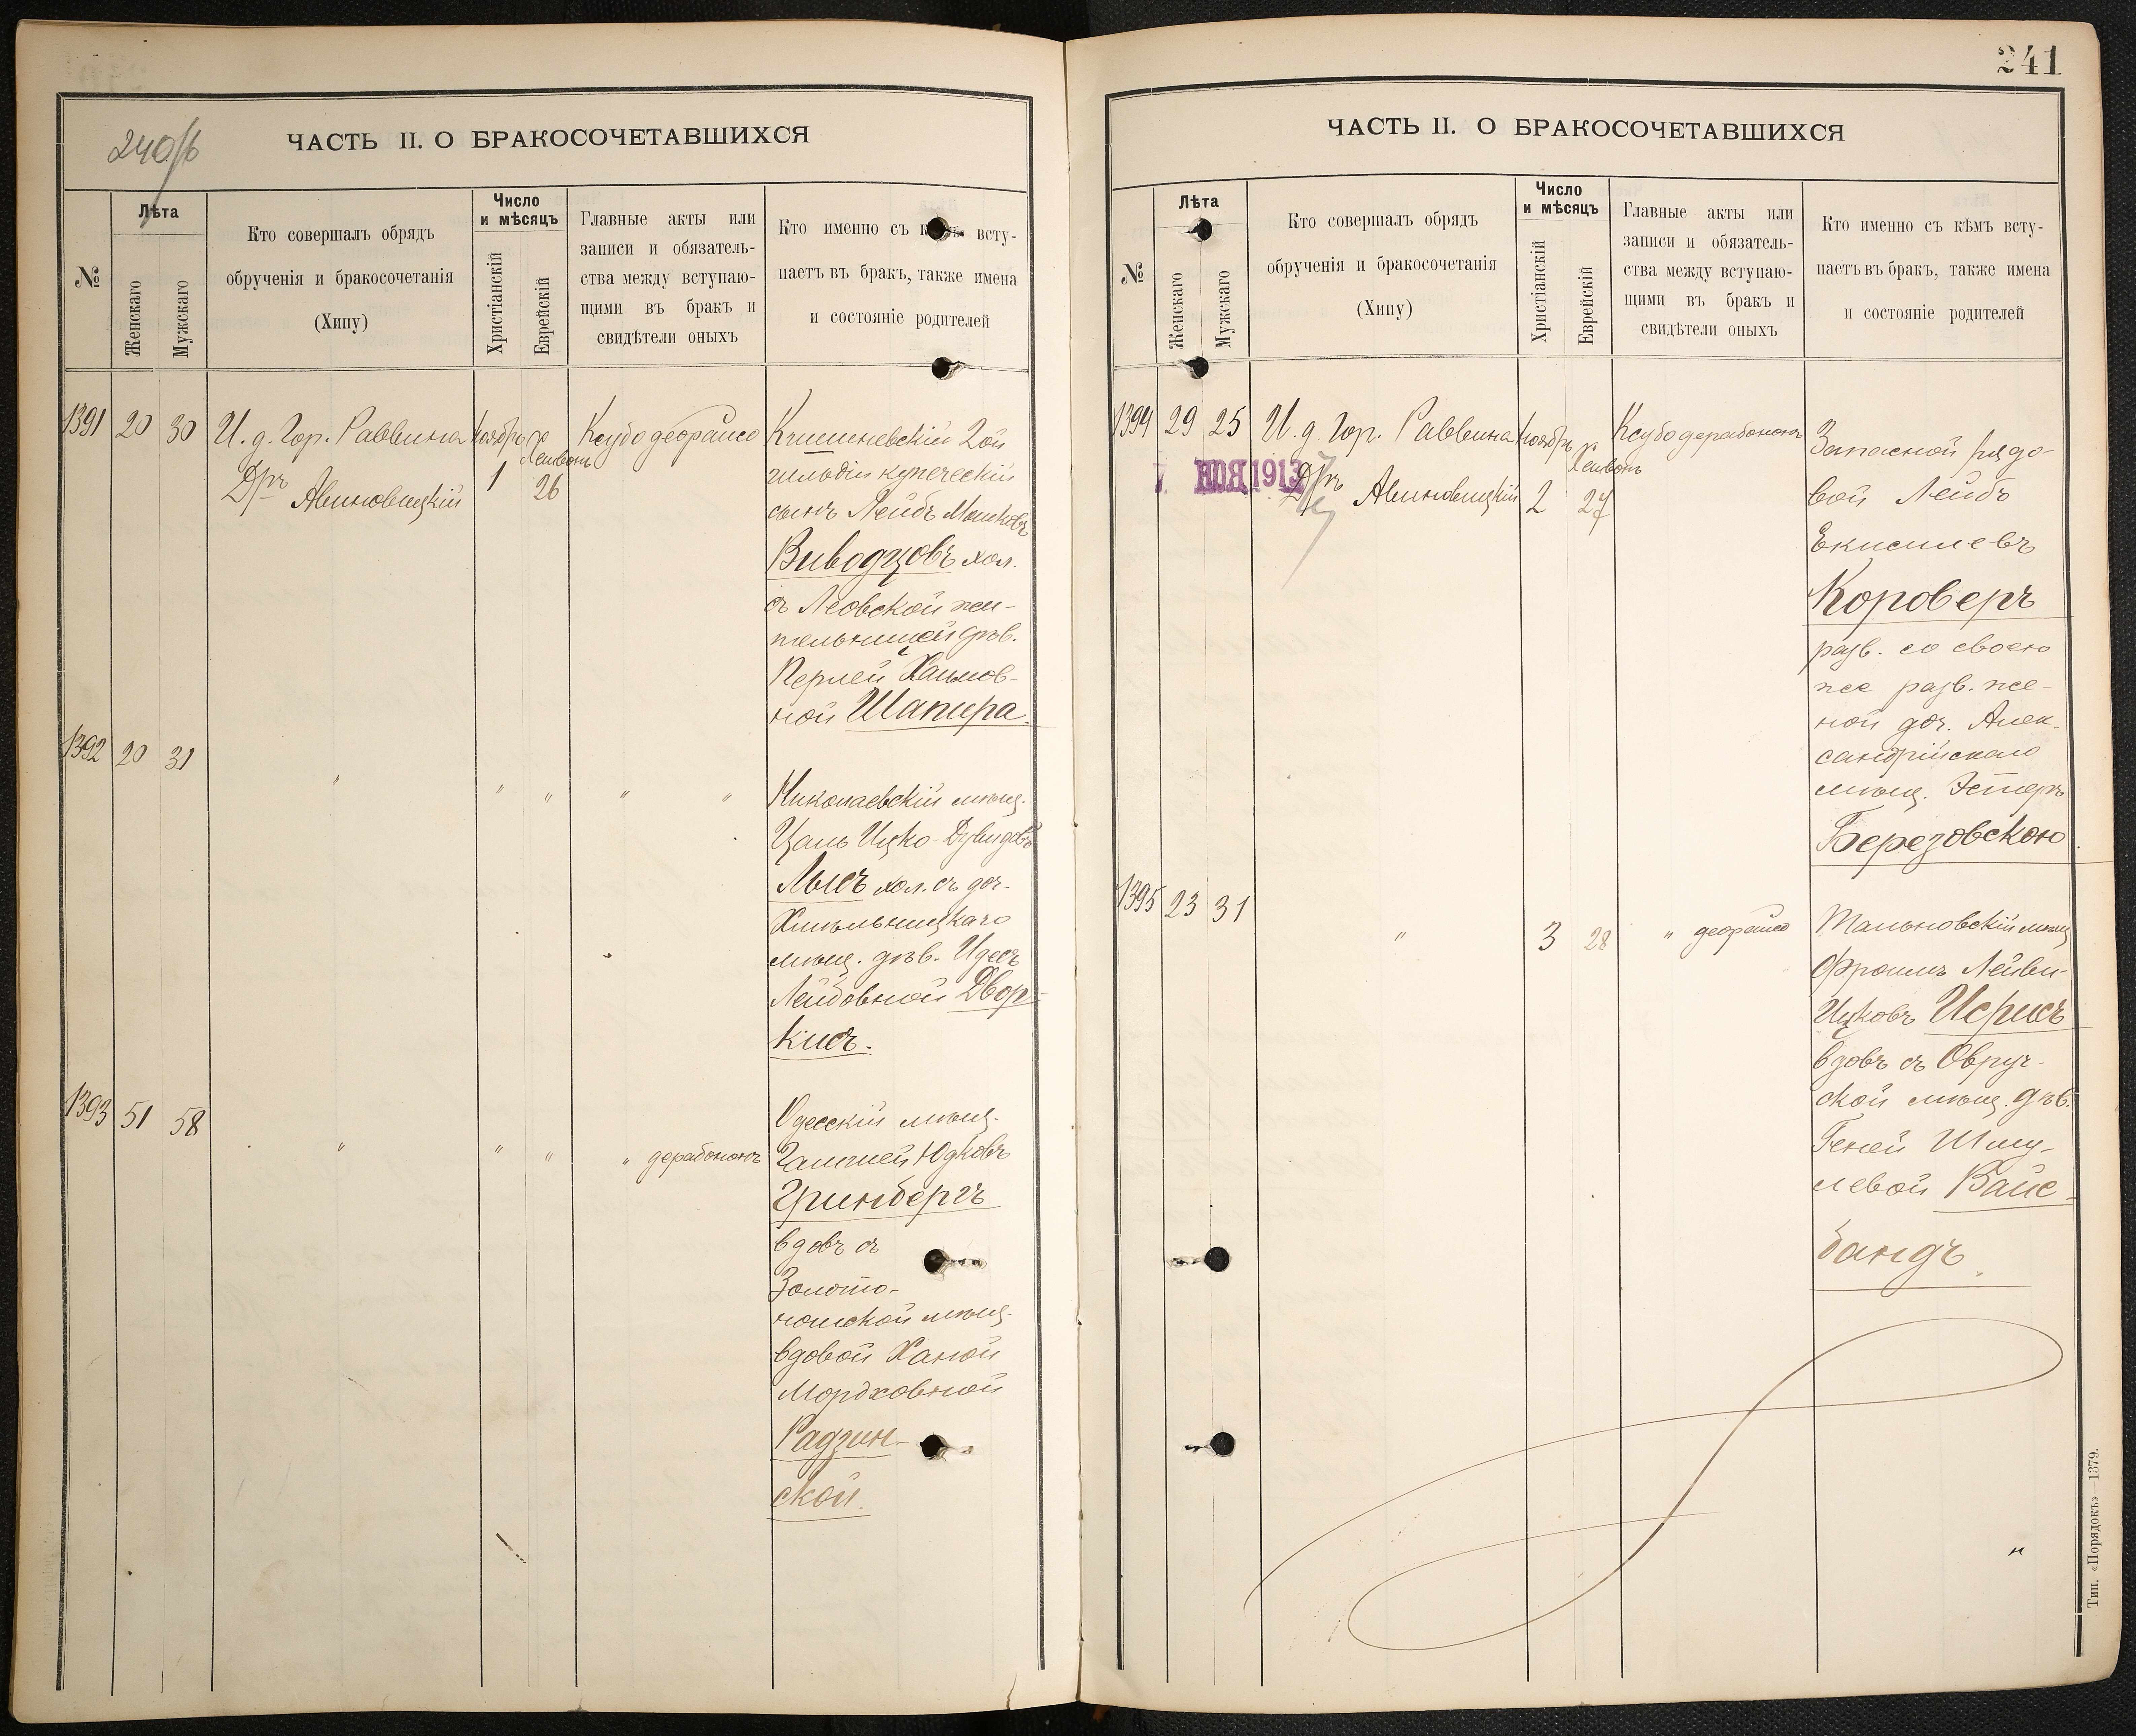 240/б
ЧАСТЬ II. О БРАКОСОЧЕТАВШИХСЯ
№
Лѣта
Женскаго
Мужскаго
Кто совершалъ обрядъ
обрученія и бракосочетанія
(Хипу)
Число
и мѣсяцъ
Христіанскій
Еврейскій
Главные акты или
записи и обязатель-
ства между вступаю-
щими въ бракъ и
свидѣтели оныхъ
Кто именно съ всту-
паетъ въ бракъ, также имена
и состояніе родителей
1391 20 30 И. д. Гор. Раввина Ноябрь Ксубо деорайсо
Дръ Авиновицкій 1 26
Кишиневскій 2ой
гильдіи купеческій
сынъ Лейбъ Мошковъ
Виводцовъ хол.
съ Леовской жи-
тельницей дѣв.
Перлей Хаимов-
ной Шапира.
1392 20 31 " " " " "
Николаевскій мѣщ.
Цаль Ицко-Дувидовъ
Лысъ хол. съ доч.
Хмѣльницкаго
мѣщ. дѣв. Идесъ
Лейбовной Двор-
кисъ.
1393 51 58 " " " " дерабононъ
Одесскій мѣщ.
Юдковъ
Гринбергъ
вдовъ съ
Золото-
ношской мѣщ.
вдовой Ханой
Мордховной
Радзин-
ской.
241
ЧАСТЬ II. О БРАКОСОЧЕТАВШИХСЯ
№
Лѣта
Женскаго
Мужскаго
Кто совершалъ обрядъ
обрученія и бракосочетанія
(Хипу)
Число
и мѣсяцъ
Христіанскій
Еврейскій
Главные акты или
записи и обязатель-
ства между вступаю-
щими въ бракъ и
свидѣтели оныхъ
Кто именно съ кѣмъ всту-
паетъ въ бракъ, также имена
и состояніе родителей
1394 29 25 И. д. Гор. Раввина Ноябрь Ксубо дерабононъ
7 НОЯ 1913
Дръ Авиновицкій 2 27
Запасной рядо-
вой Лейбъ
Екисилевъ
Короверъ
разв. со своею
же разв. же-
ной доч. Алек-
сандрійскаго
мѣщ. Эстеръ
Березовскою.
1395 23 31 " 3 28 " деорайсо
Тальновскій мѣщ
Фроимъ Лейви-
Ицковъ Исрисъ
вдовъ съ Овруч-
ской мѣщ. дѣв.
Геней Шму-
левой Вайс-
бандъ.
Тип. «Порядокъ»—1379.